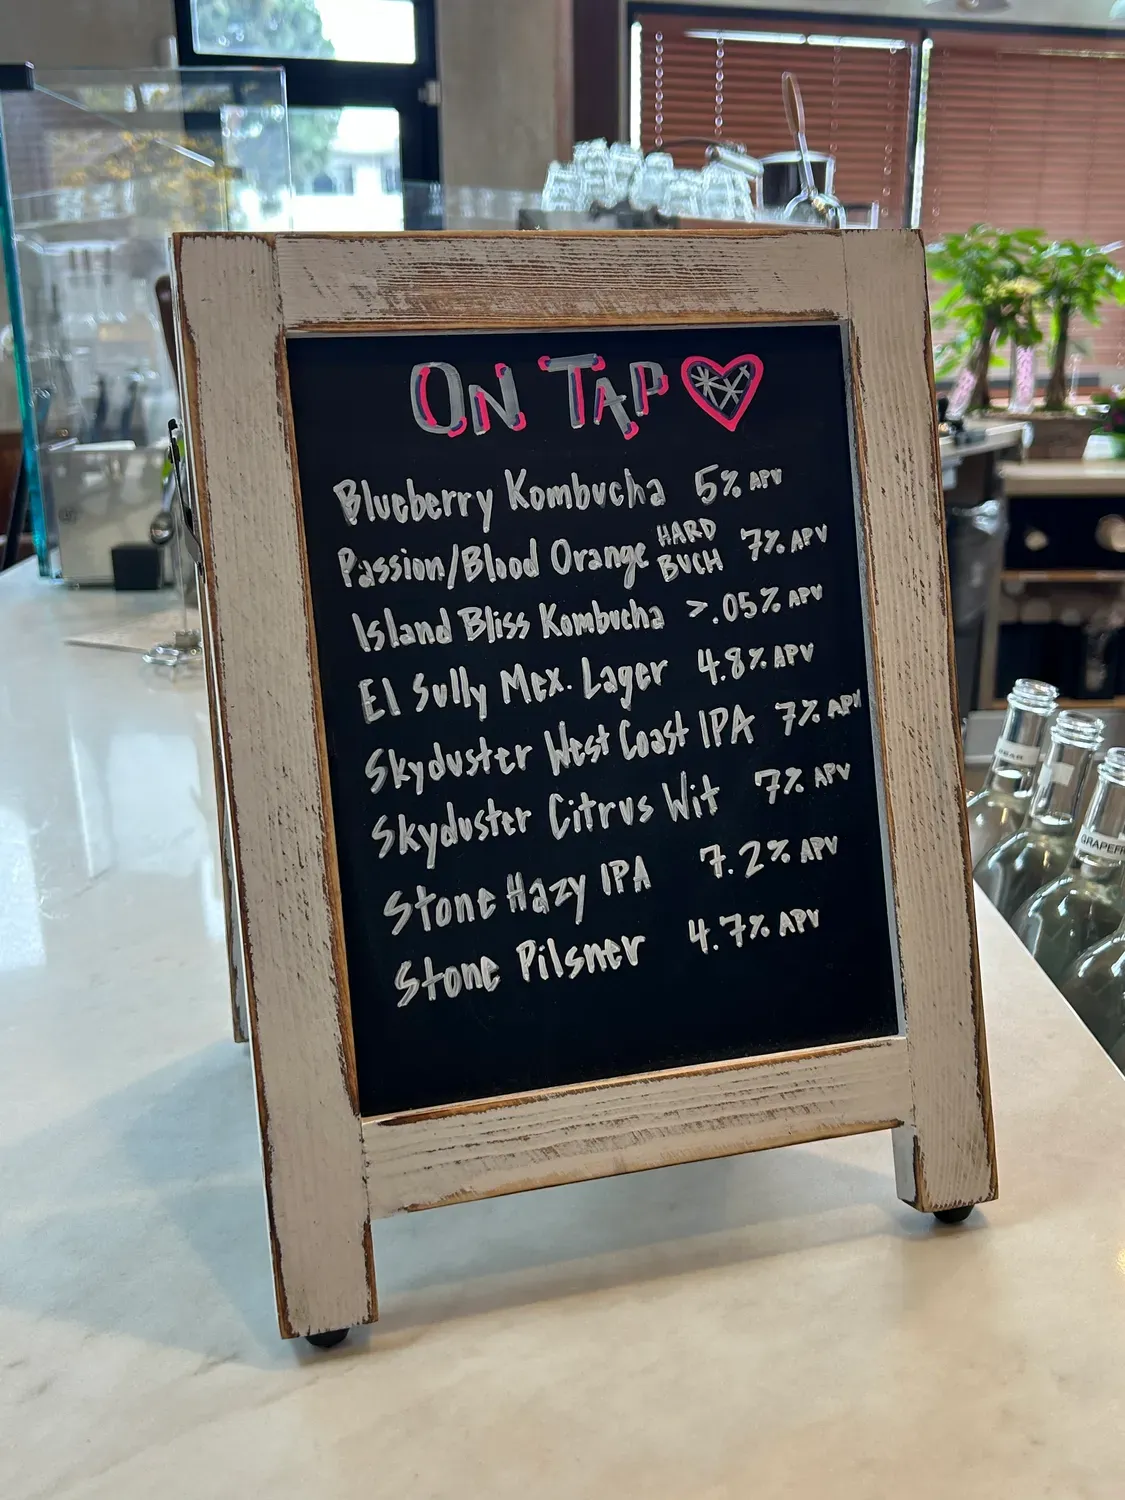 ON TAP
Blueberry Kombucha 5% APV
Passion/Blood Orange HARD BUCH 7% APV
Island Bliss Kombucha >.05% APV
El Sully Mex. Lager 4.8% APV
Skyduster West Coast IPA 7% APV
Skyduster Citrus Wit 7% APV
Stone Hazy IPA 7.2% APV
Stone Pilsner 4.7% APV